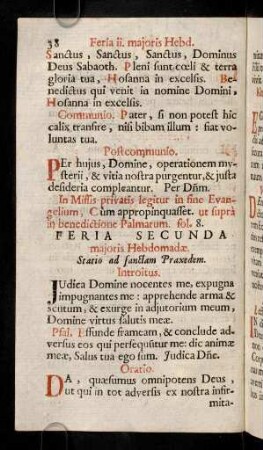 38 Feria ii. majoris Hebd.
Sanctus, Sanctus, Sanctus, Dominus
Deus Sabaoth. Pleni sunt cœli & terra
gloria tua, Hosanna in excelsis. Be-
nedictus qui venit in nomine Domini,
Hosanna in excelsis.
Communio. Pater, si non potest hic
calix transire, nisi bibam illum : fiat vo-
luntas tua.
Postcommunio.
PEr hujus, Domine, operationem my-
sterii, & vitia nostra purgentur, & justa
desideria compleantur. Per Dñm.
In Missis privatis legitur in fine Evan-
gelium, Cùm appropinquasset. ut suprà
in benedictione Palmarum. fol. 8.
FERIA SECUNDA
majoris Hebdomadæ.
Statio ad sanctam Praxedem.
Introitus.
JUdica Domine nocentes me, expugna
impugnantes me : apprehende arma &
scutum, & exurge in adjutorium meum,
Domine virtus salutis meæ.
Psal. Effunde frameam, & conclude ad-
versùs eos qui persequuntur me: dic animæ
meæ, Salus tua ego sum. Judica Dñe.
Oratio.
DA, quæsumus omnipotens Deus,
ut qui in tot adversis ex nostra infir-
mita-